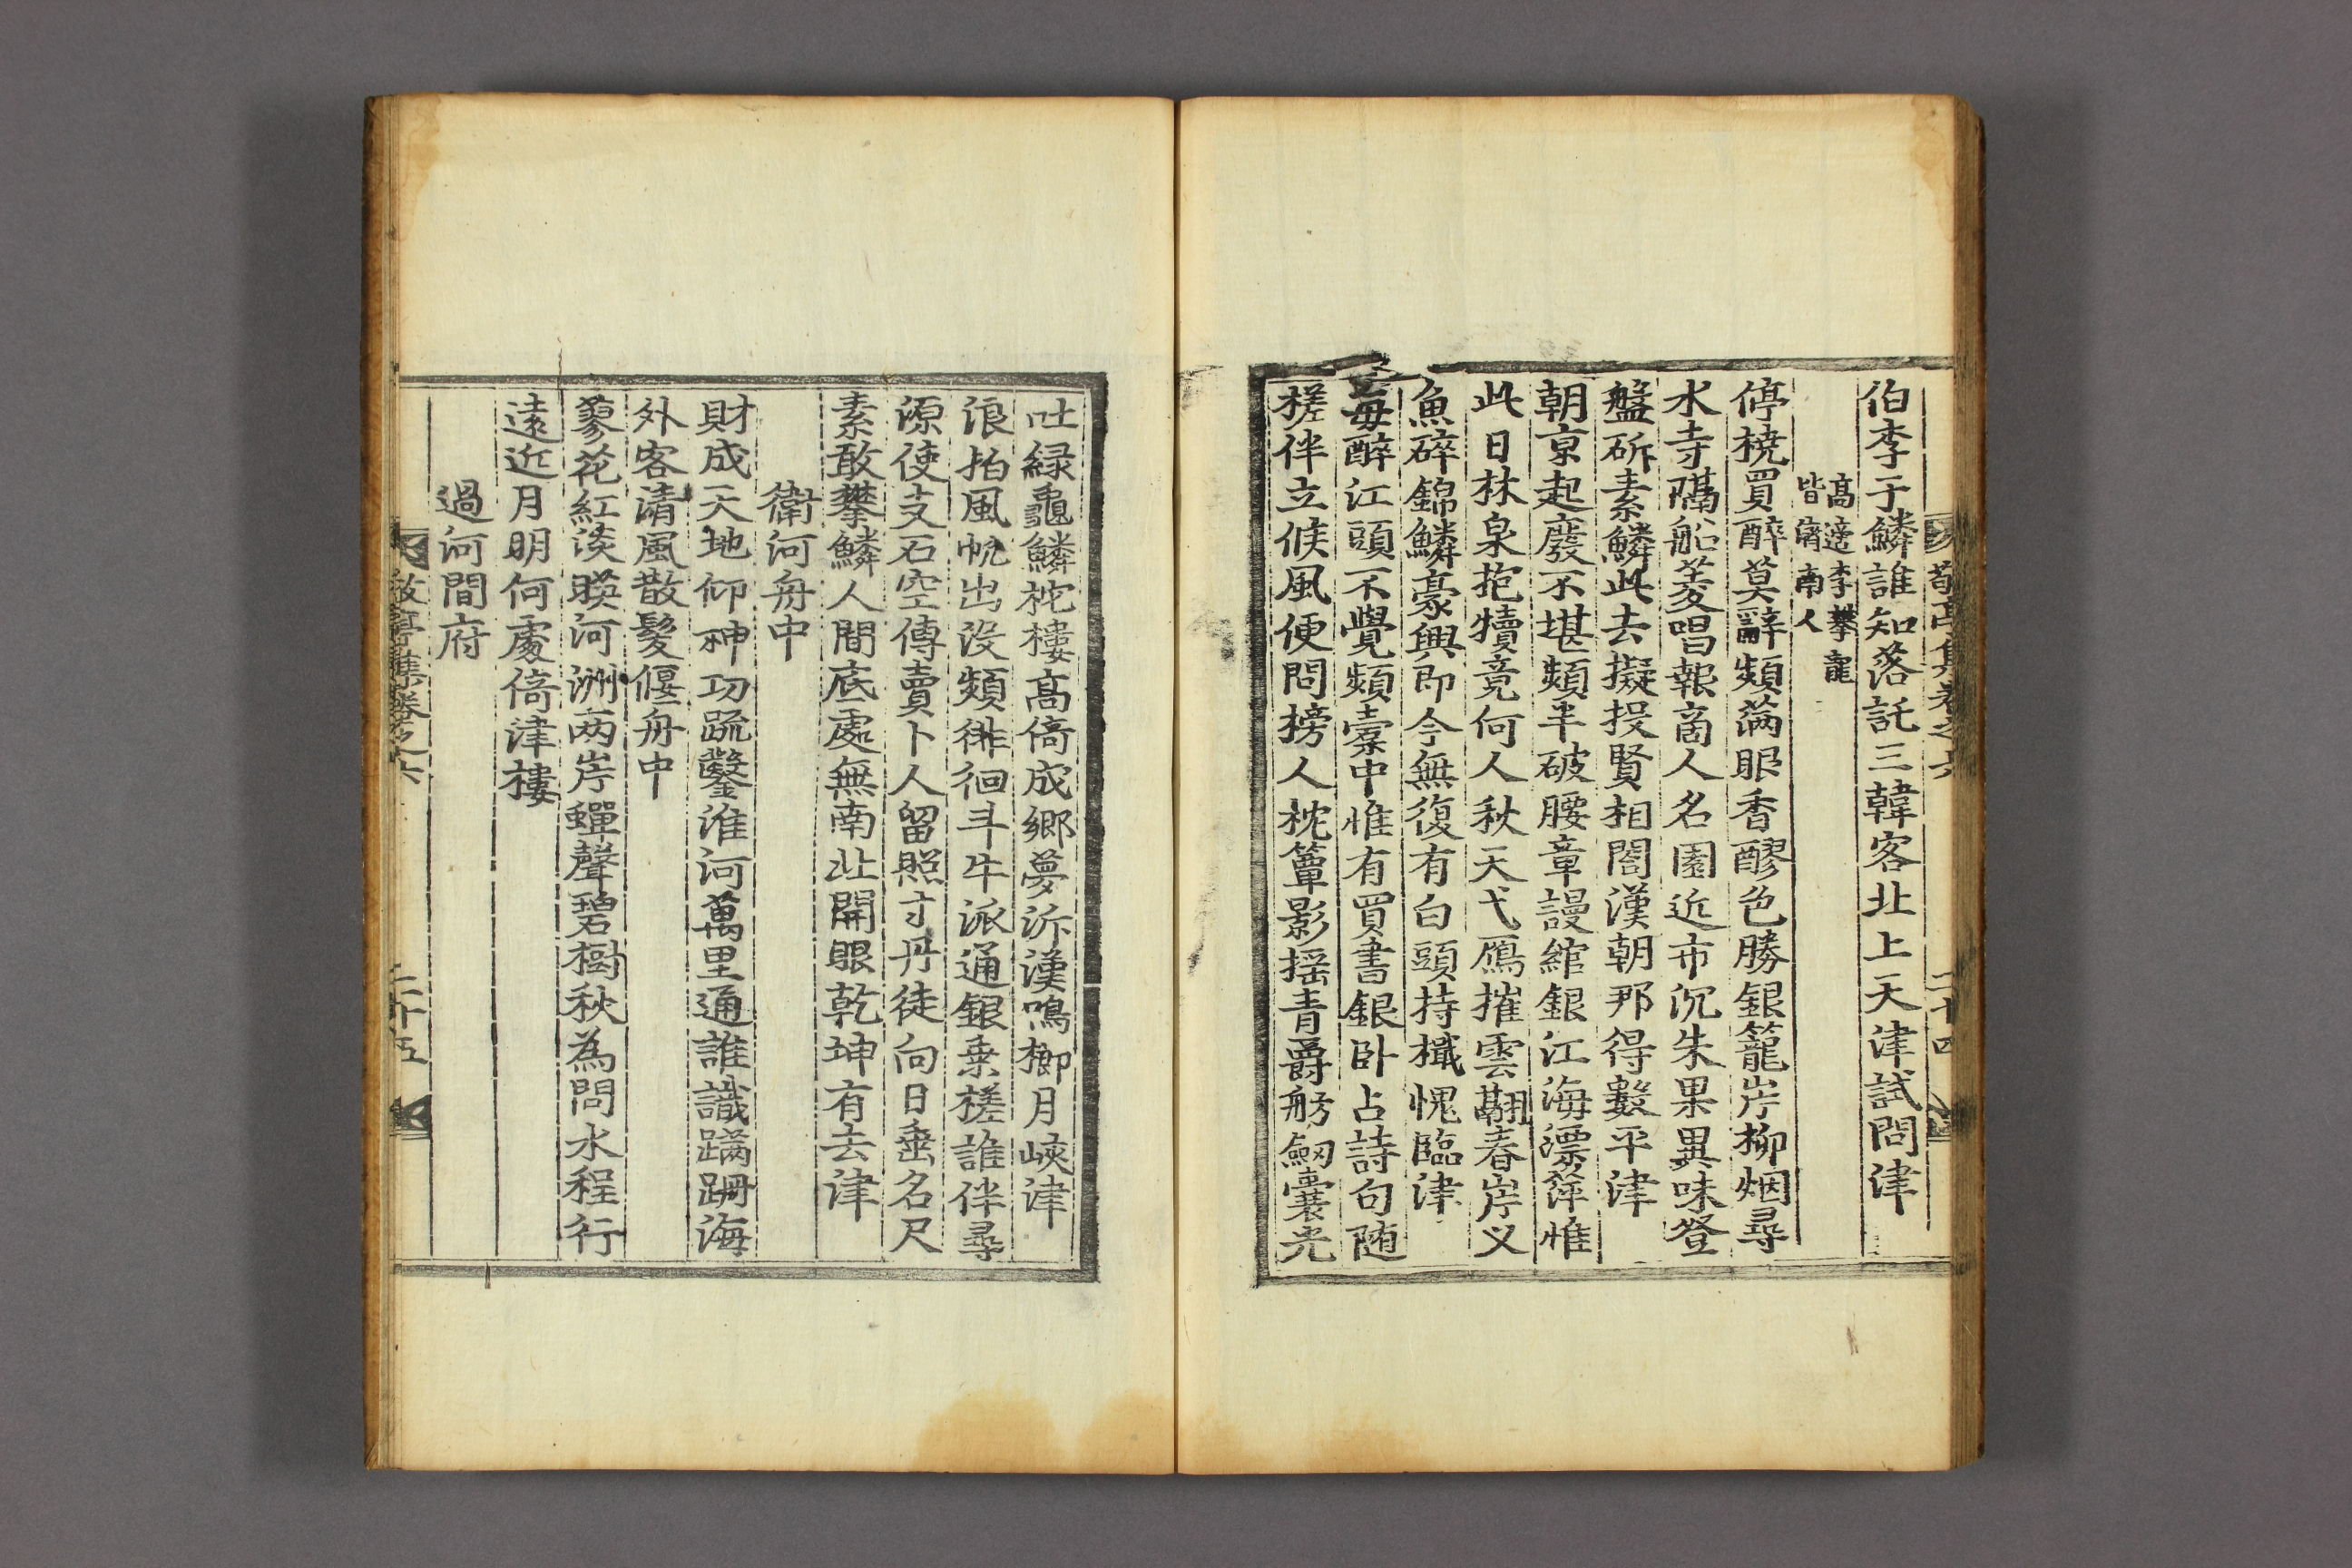 敬亭集卷之六
二十四
伯李于鱗誰知落託三韓客北上天津試問津
高邁李攀龍
皆濟南人
停橈買醉莫辭頻滿眼香醪色勝銀籠岸柳烟尋
水寺隔船菱唱報商人名園近市沉朱果異味登
盤斫素鱗此去擬投賢相閤漢朝那得數平津
朝京起廢不堪頻半破腰章謾綰銀江海漂萍惟
此日林泉抱犢竟何人秋天弋鴈摧雲翮春岸乂
魚碎錦鱗豪興即今無復有白頭持檝愧臨津
每醉江頭不覺頻橐中惟有買書銀卧占詩句随
槎伴立候風便問榜人枕簟影揺青爵舫劒囊光
吐緑龜鱗柁樓高倚成郷夢泝漢鳴榔月峽津
浪拍風帆出没頻徘徊斗牛派通銀乗槎誰伴尋
源使支石空傳賣卜人留照寸丹徒向日垂名尺
素敢攀鱗人間底處無南北開眼乾坤有去津
衛河舟中
財成天地仰神功䟽鑿淮河萬里通誰識蹣跚海
外客清風散髮偃舟中
蓼花紅淡暎河洲兩岸蟬聲碧樹秋為問水程行
遠近月明何處倚津樓
過河間府
敬亭集卷之六
二十五